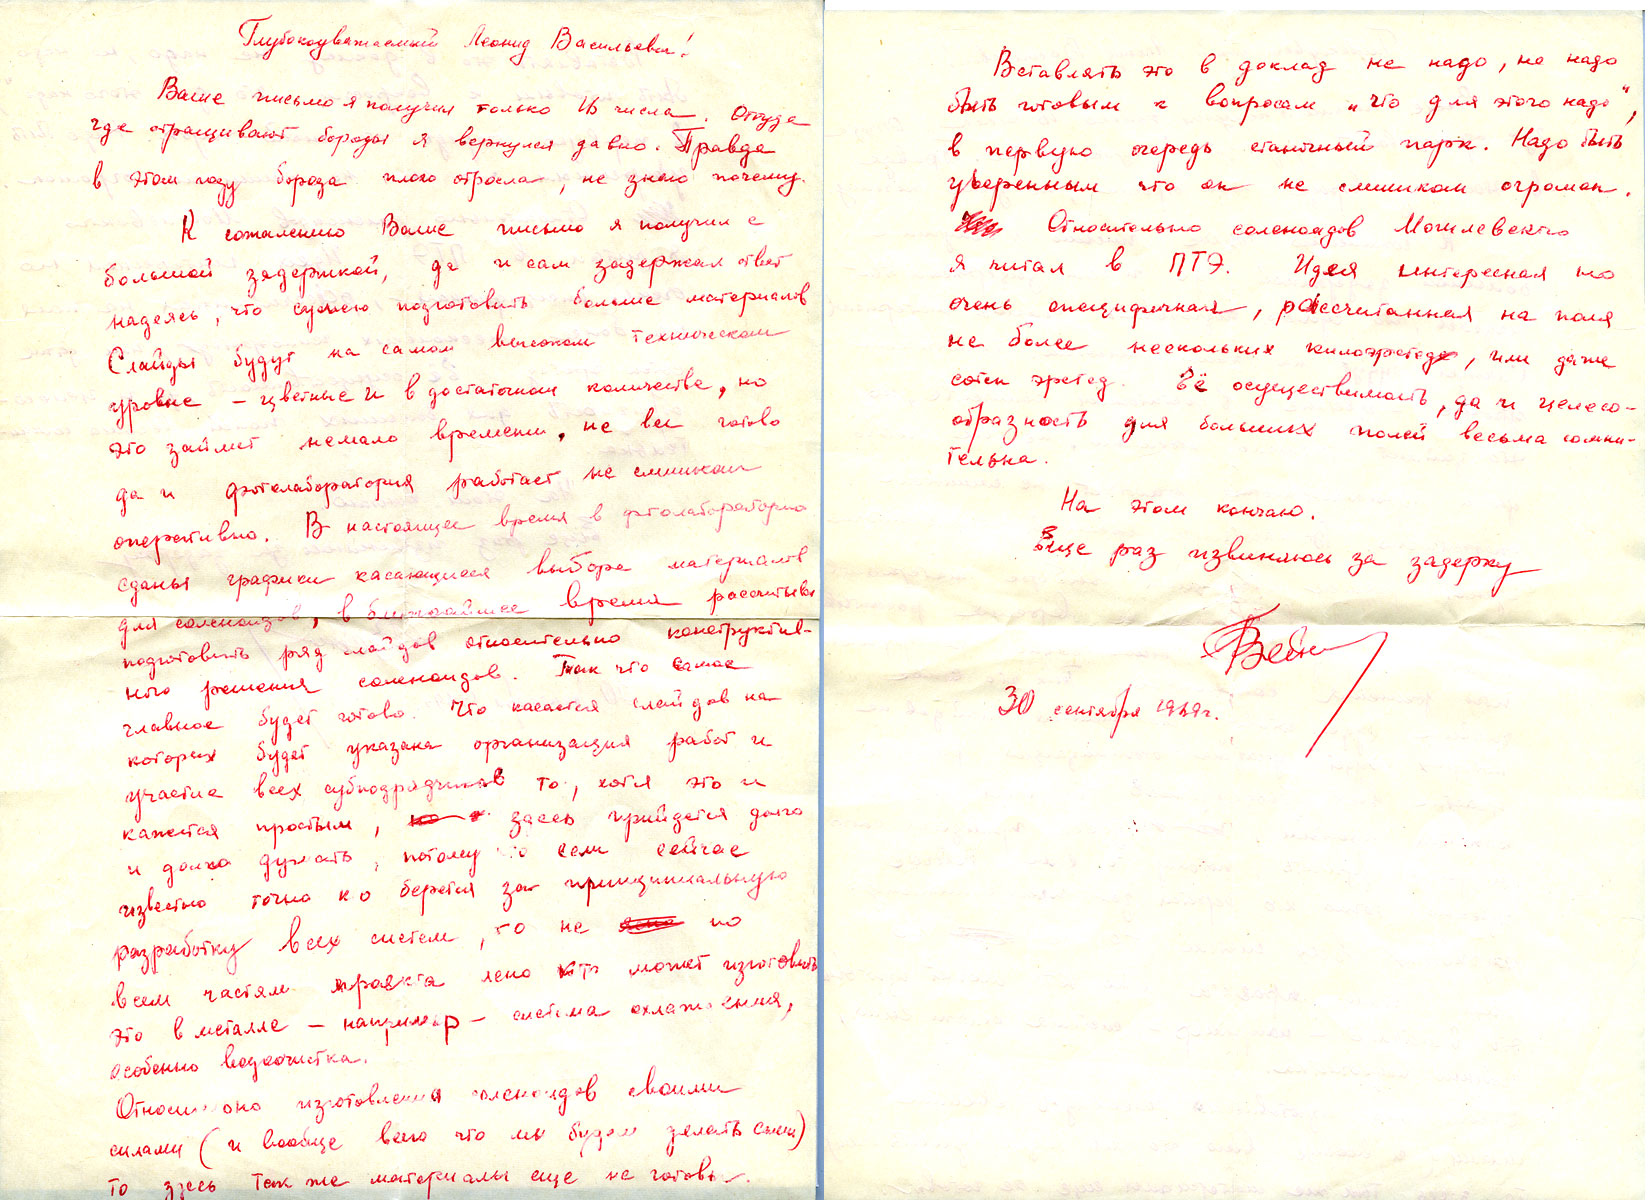 Глубокоуважаемый Леонид Васильевич!
Ваше письмо я получил только 16 числа. Оттуда
где отращивают бороды я вернулся давно. Правда
в этом году борода плохо отросла, не знаю почему.
К сожалению Ваше письмо я получил с
большой задержкой, да и сам задержал ответ
надеясь, что сумею подготовить больше материалов
Слайды будут на самом высоком техническом
уровне – цветные и в достаточном количестве, но
это займет немало времени, не все готово
да и фотолаборатория работает не слишком
оперативно. В настоящее время в фотолабораторию
сданы графики касающиеся выбора материалов
для соленоидов, в ближайшее время рассчитываю
подготовить ряд слайдов относительно конструктив-
ного решения соленоидов. Так что самое
главное будет готово. Что касается слайдов на
которых будет указана организация работ и
участие всех субподрядчиков то, хотя это и
кажется простым, здесь прийдется долго
и долго думать, потому что если сейчас
известно точно кто берется за принципиальную
разработку всех систем, то не по
всем частям проекта ясно кто может изготовить
это в металле – например – система охлаждения,
особенно водоочистка.
Относительно изготовления соленоидов своими
силами (и вообще всего что мы будем делать сами)
то здесь так же материалы еще не готовы.
Вставлять это в доклад не надо, но надо
быть готовым к вопросам „что для этого надо",
в первую очередь станочный парк. Надо быть
уверенным что он не слишком огромен.
Относительно соленоидов Могилевского
я читал в ПТЭ. Идея интересная но
очень специфичная, рассчитанная на поля
не более нескольких килоэрстед, или даже
сотен эрстед. Её осуществимость, да и целесо-
образность для больших полей весьма сомни-
тельна.
На этом кончаю.
Еще раз извиняюсь за задержку
30 сентября 1969г.